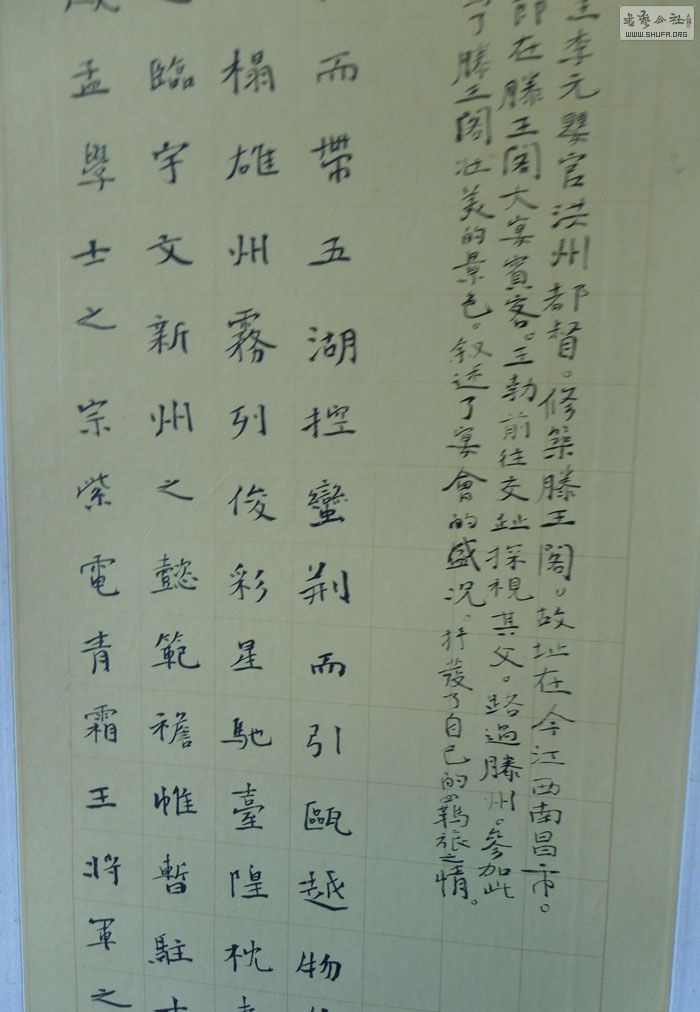 書藝公社
WWW.SHUFA.ORG
李元嬰官洪州都督。修築滕王閣。故址在今江西南昌市。
即在滕王阁大宴賓客。王勃前往交趾探視其父。路過滕州。參加此
了滕王阁壮美的景色。叙述了宴會的盛况。抒發了自己的羁旅之情。
而帶五湖控蠻荆而引甌越物
榻雄州霧列俊彩星馳臺隍枕
臨宇文新州之懿範襜帷暫駐
孟學士之宗紫電青霜王將軍之